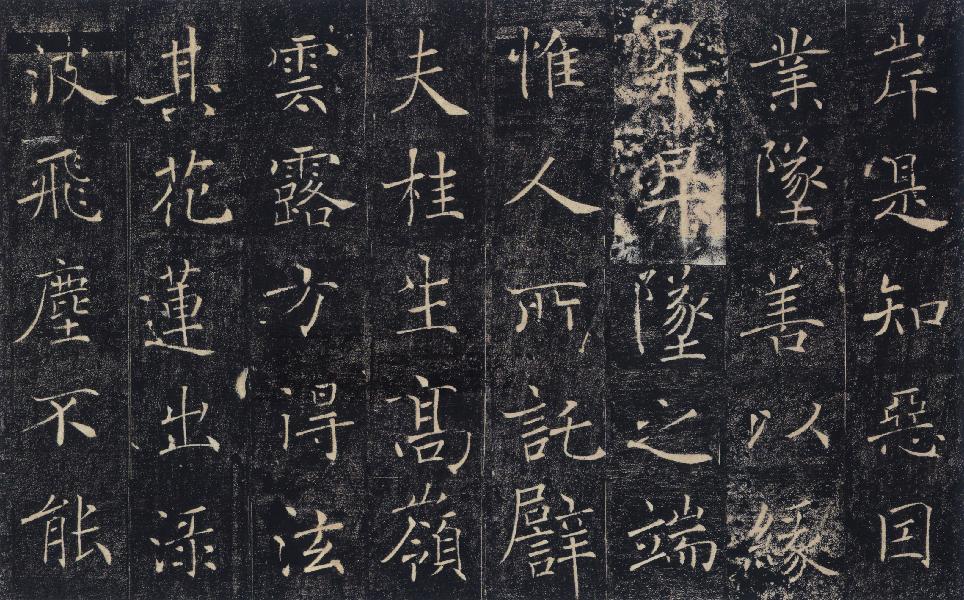 岸是知惡囙
業墜善以緣
昇昇墜之端
惟人所託譬
夫桂生髙嶺
雲露方得泫
其花蓮出淥
波飛塵不能